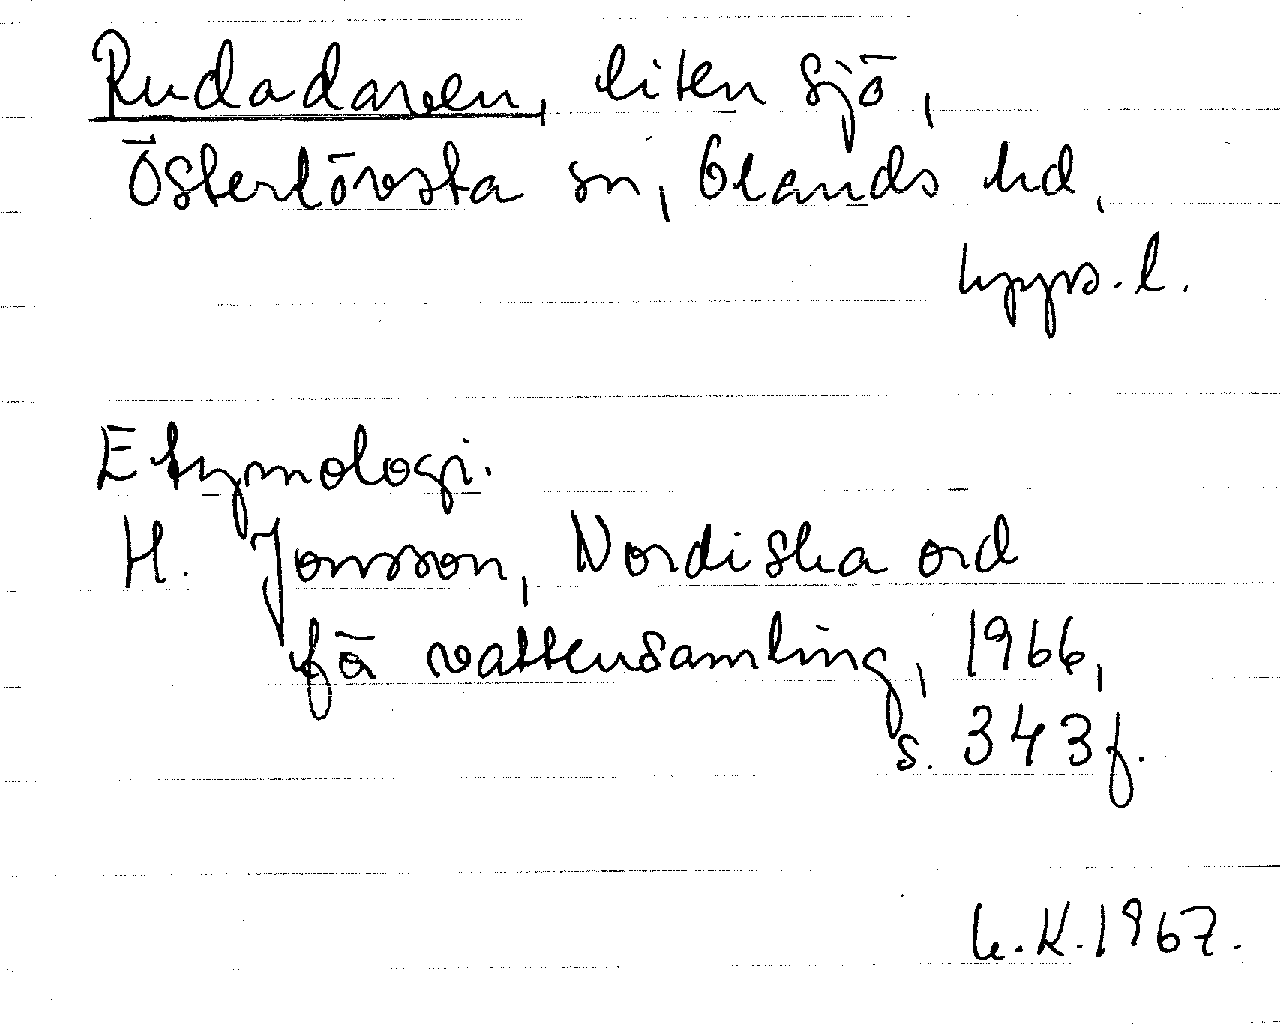 Rudadaren, liten sjö,
Österlövsta sn, Olands hd,
Upps. l.
Etymologi.
H. Jonsson, Nordiska ord
för vattensamling, 1966,
s. 343 f.
K. 1967.